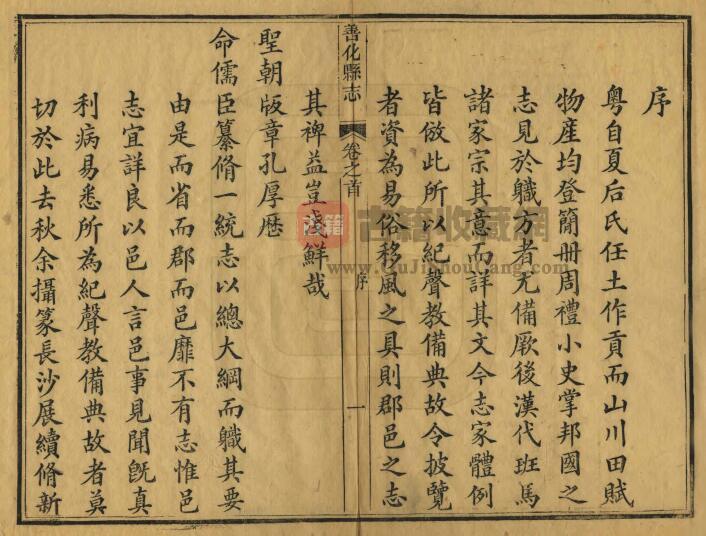 序
粵自夏后氏任土作貢而山川田賦
物產均登簡冊周禮小史掌邦國之
志見於職方者尤備厥後漢代班馬
諸家宗其意而詳其文今志家體例
皆倣此所以紀聲教備典故令披覽
者資為易俗移風之具則郡邑之志
善化縣志
卷之首
序
一
其裨益豈淺鮮哉
聖朝版章孔厚歷
命儒臣纂脩一統志以總大綱而職其要
由是而省而郡而邑靡不有志惟邑
志宜詳良以邑人言邑事見聞旣真
利病易悉所為紀聲教備典故者莫
切於此去秋余攝篆長沙展續脩新
古籍
古籍收藏網
www.GuJiShouCang.com